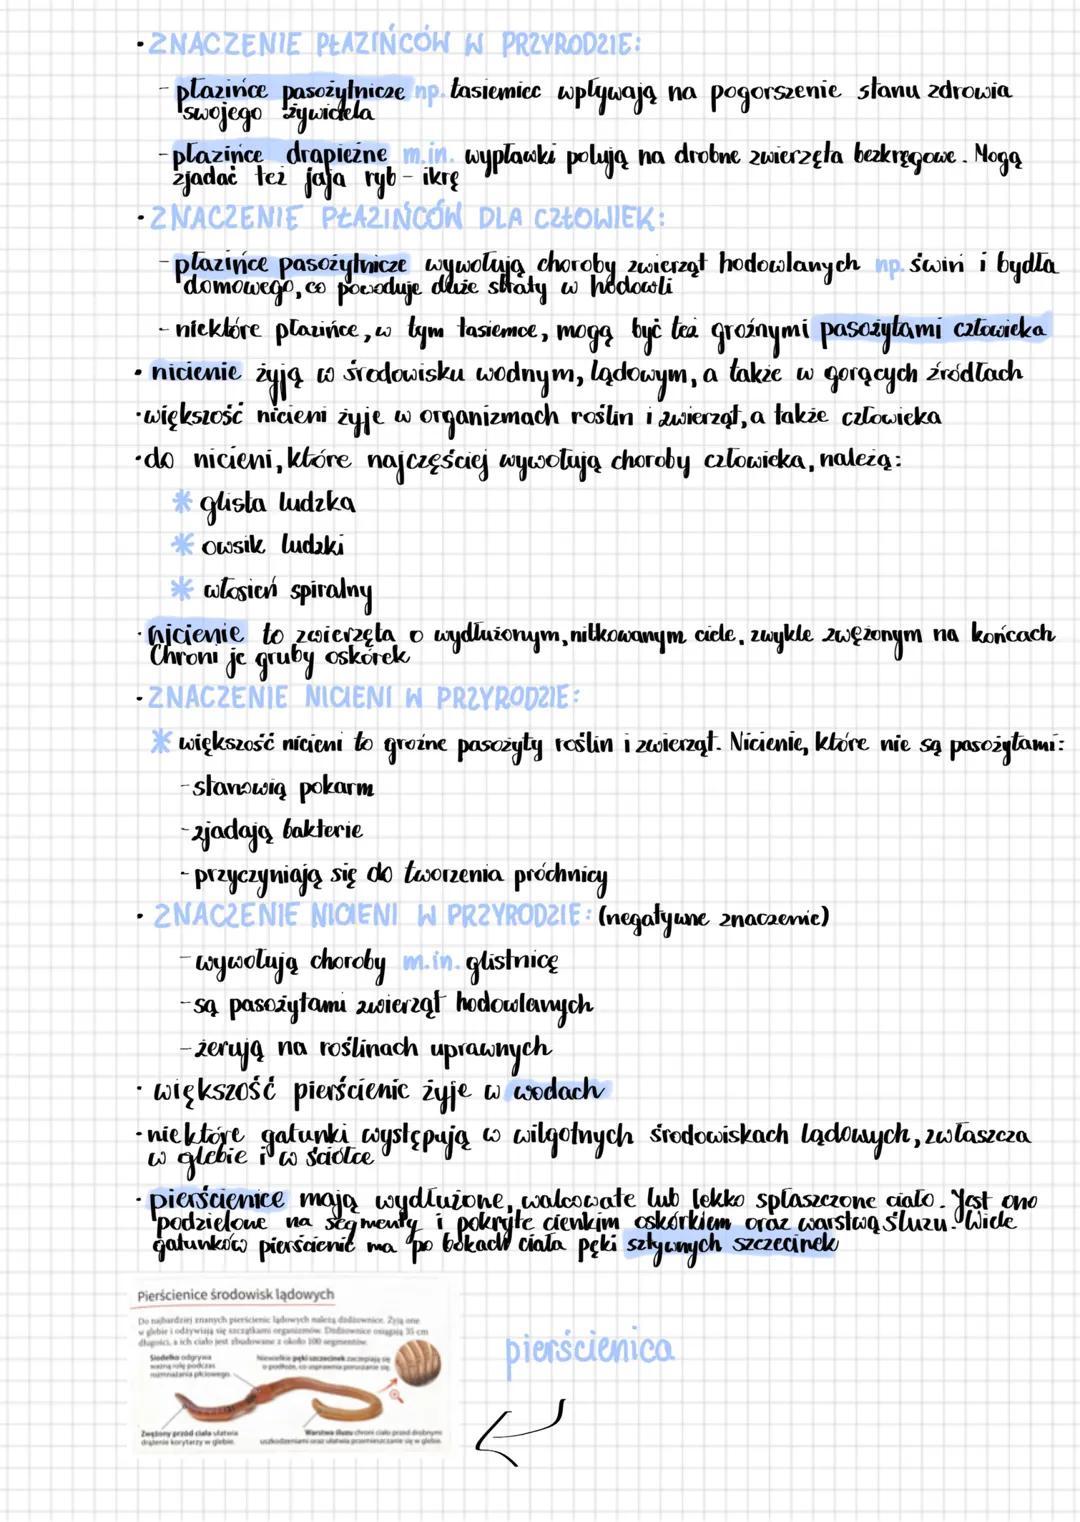 · ZNACZENIE PŁAZIŃCÓW W PRZYRODZIE:
- płazińce pasożytnicze np. tasiemiec wpływają na pogorszenie stanu zdrowia
swojego żywiciela
- płazińce drapieżne m.in. wypławki polują na drobne zwierzęta bezkręgowe. Mogą
zjadać też jaja ryb - ikrę
· ZNACZENIE PŁAZIŃCÓW DLA CZŁOWIEK:
- płazińce pasożytnicze wywołują choroby zwierząt hodowlanych np. świń i bydła
domowego, co powoduje duże straty w hodowli
- niektóre płazińce, w tym tasiemce, mogą być też groźnymi pasożytami człowieka
· nicienie żyją w środowisku wodnym, lądowym, a także w gorących źródłach
· większość nicieni żyje w organizmach roślin i zwierząt, a także człowieka
· do nicieni, które najczęściej wywołują choroby człowieka, należą:
* glista ludzka
* owsik ludzki
* włosień spiralny
· nicienie to zwierzęta o wydłużonym, nitkowanym ciele, zwykle zwężonym na końcach
Chroni je gruby oskórek
· ZNACZENIE NICIENI W PRZYRODZIE:
* większość nicieni to groźne pasożyty roślin i zwierząt. Nicienie, które nie są pasożytami:
- stanowią pokarm
- zjadają bakterie
- przyczyniają się do tworzenia próchnicy
· ZNACZENIE NICIENI W PRZYRODZIE: (negatywne znaczenie)
- wywołują choroby m.in. glistnicę
- są pasożytami zwierząt hodowlanych
- żerują na roślinach uprawnych
· większość pierścienic żyje w wodach
· niektóre gatunki występują w wilgotnych środowiskach lądowych, zwłaszcza
w glebie i w ściółce
· pierścienice mają wydłużone, walcowate lub lekko spłaszczone ciało. Jest ono
podzielone na segmenty i pokryte cienkim oskórkiem oraz warstwą śluzu. Wiele
gatunków pierścienic ma po bokach ciała pęki sztywnych szczecinek
Pierścienice środowisk lądowych
Do najbardziej znanych pierścienic lądowych należą dżdżownice. Żyją one
w glebie i odżywiają się szczątkami organizmów. Dżdżownice osiągają 35 cm
długości, a ich ciało jest zbudowane z około 100 segmentów.
Siodełko odgrywa
ważną rolę podczas
rozmnażania płciowego.
Niewielkie pęki szczecinek zaczepiają się
o podłoże, co usprawnia poruszanie się.
pierścienica
Zwężony przód ciała ułatwia
drążenie korytarzy w glebie.
Warstwa śluzu chroni ciało przed drobnymi
uszkodzeniami oraz ułatwia przemieszczanie się w glebie.